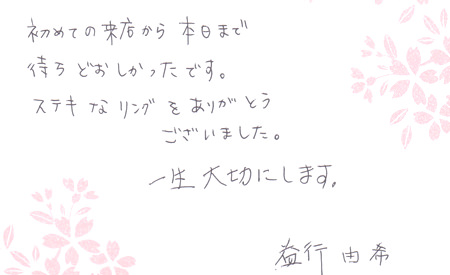 初めての来店から 本日まで
待ちどおしかったです。
ステキなリングをありがとう
ございました。
一生大切にします。
益行 由希